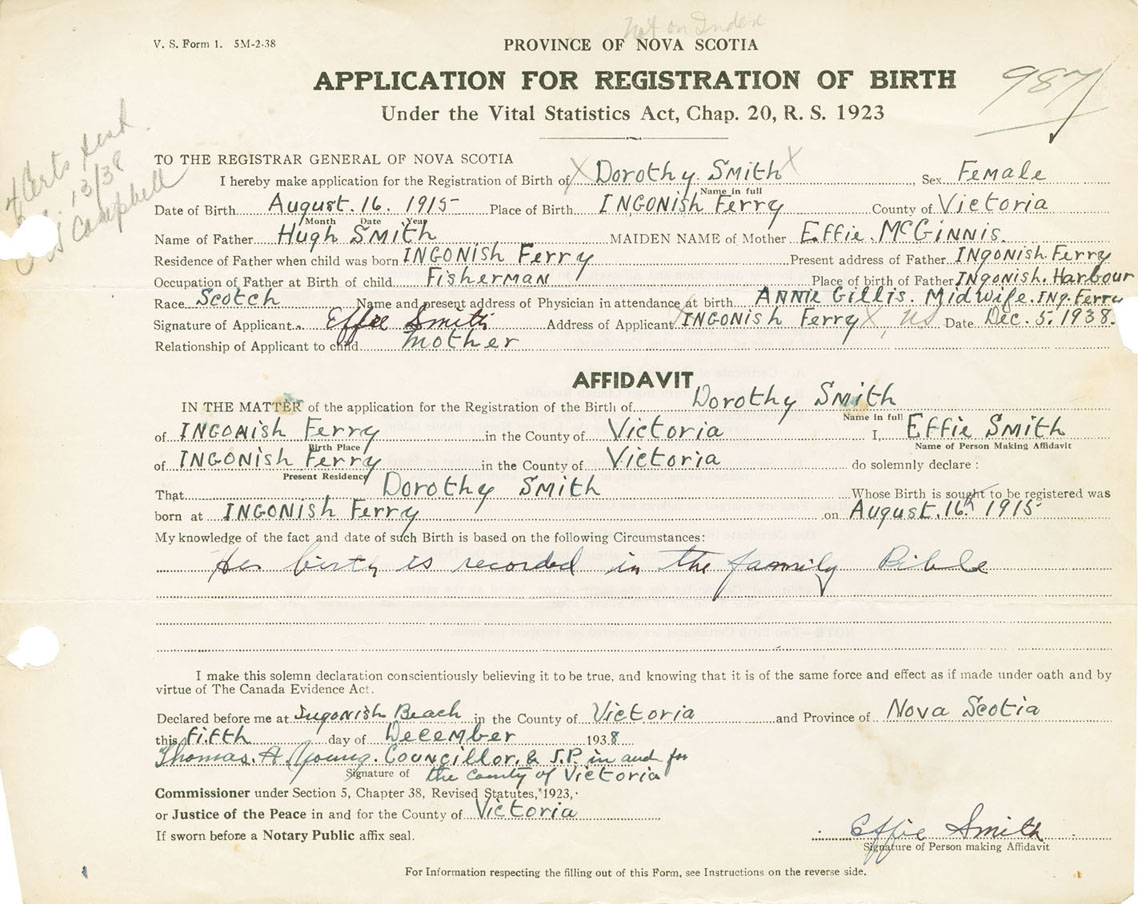 Not on Index
V. S. Form 1. 5M-2-38
PROVINCE OF NOVA SCOTIA
APPLICATION FOR REGISTRATION OF BIRTH
987
Under the Vital Statistics Act, Chap. 20, R. S. 1923
4 Certs
13/38
Campbell
TO THE REGISTRAR GENERAL OF NOVA SCOTIA
I hereby make application for the Registration of Birth of X Dorothy Smith X, Sex Female
Name in full
Date of Birth August 16. 1915 Place of Birth INGONISH Ferry County of Victoria
Month Date Year
Name of Father Hugh Smith MAIDEN NAME of Mother Effie McGinnis.
Residence of Father when child was born INGONISH Ferry Present address of Father INGONISH. Ferry
Occupation of Father at Birth of child Fisherman Place of birth of Father Ingonish. Harbour
Race Scotch Name and present address of Physician in attendance at birth ANNIE Gillis. Midwife. Ing. Ferry
Signature of Applicant Effie Smith Address of Applicant X INGONISH Ferry X, NS Date Dec. 5. 1938.
Relationship of Applicant to child mother
AFFIDAVIT
IN THE MATTER of the application for the Registration of the Birth of Dorothy Smith
Name in full
of INGONISH Ferry in the County of Victoria I, Effie Smith
Birth Place Name of Person Making Affidavit
of INGONISH Ferry in the County of Victoria do solemnly declare :
Present Residence
That Dorothy Smith Whose Birth is sought to be registered was
born at INGONISH Ferry on August. 16th 1915
My knowledge of the fact and date of such Birth is based on the following Circumstances:
Her birth is recorded in the family Bible
I make this solemn declaration conscientiously believing it to be true, and knowing that it is of the same force and effect as if made under oath and by
virtue of The Canada Evidence Act.
Declared before me at Ingonish Beach in the County of Victoria and Province of Nova Scotia
this fifth day of December 1938
Thomas. A. Young. Councillor. & J.P. in and for
Signature of the county of Victoria
Commissioner under Section 5, Chapter 38, Revised Statutes, 1923,
or Justice of the Peace in and for the County of Victoria
If sworn before a Notary Public affix seal.
Effie Smith
Signature of Person making Affidavit
For Information respecting the filling out of this Form, see Instructions on the reverse side.